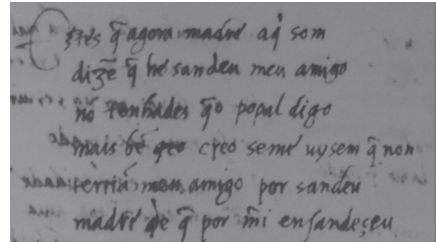 Estes q̃ agora madre aq̃ som
dizẽ q̃ he sandeu meu amigo
nõ tenhades q̃o popal digo
mais bẽ qeo creo se me uysem q̃ non
terriã meu amigo por sandeu
madre qe q̃ por mĩ ensandeçeu